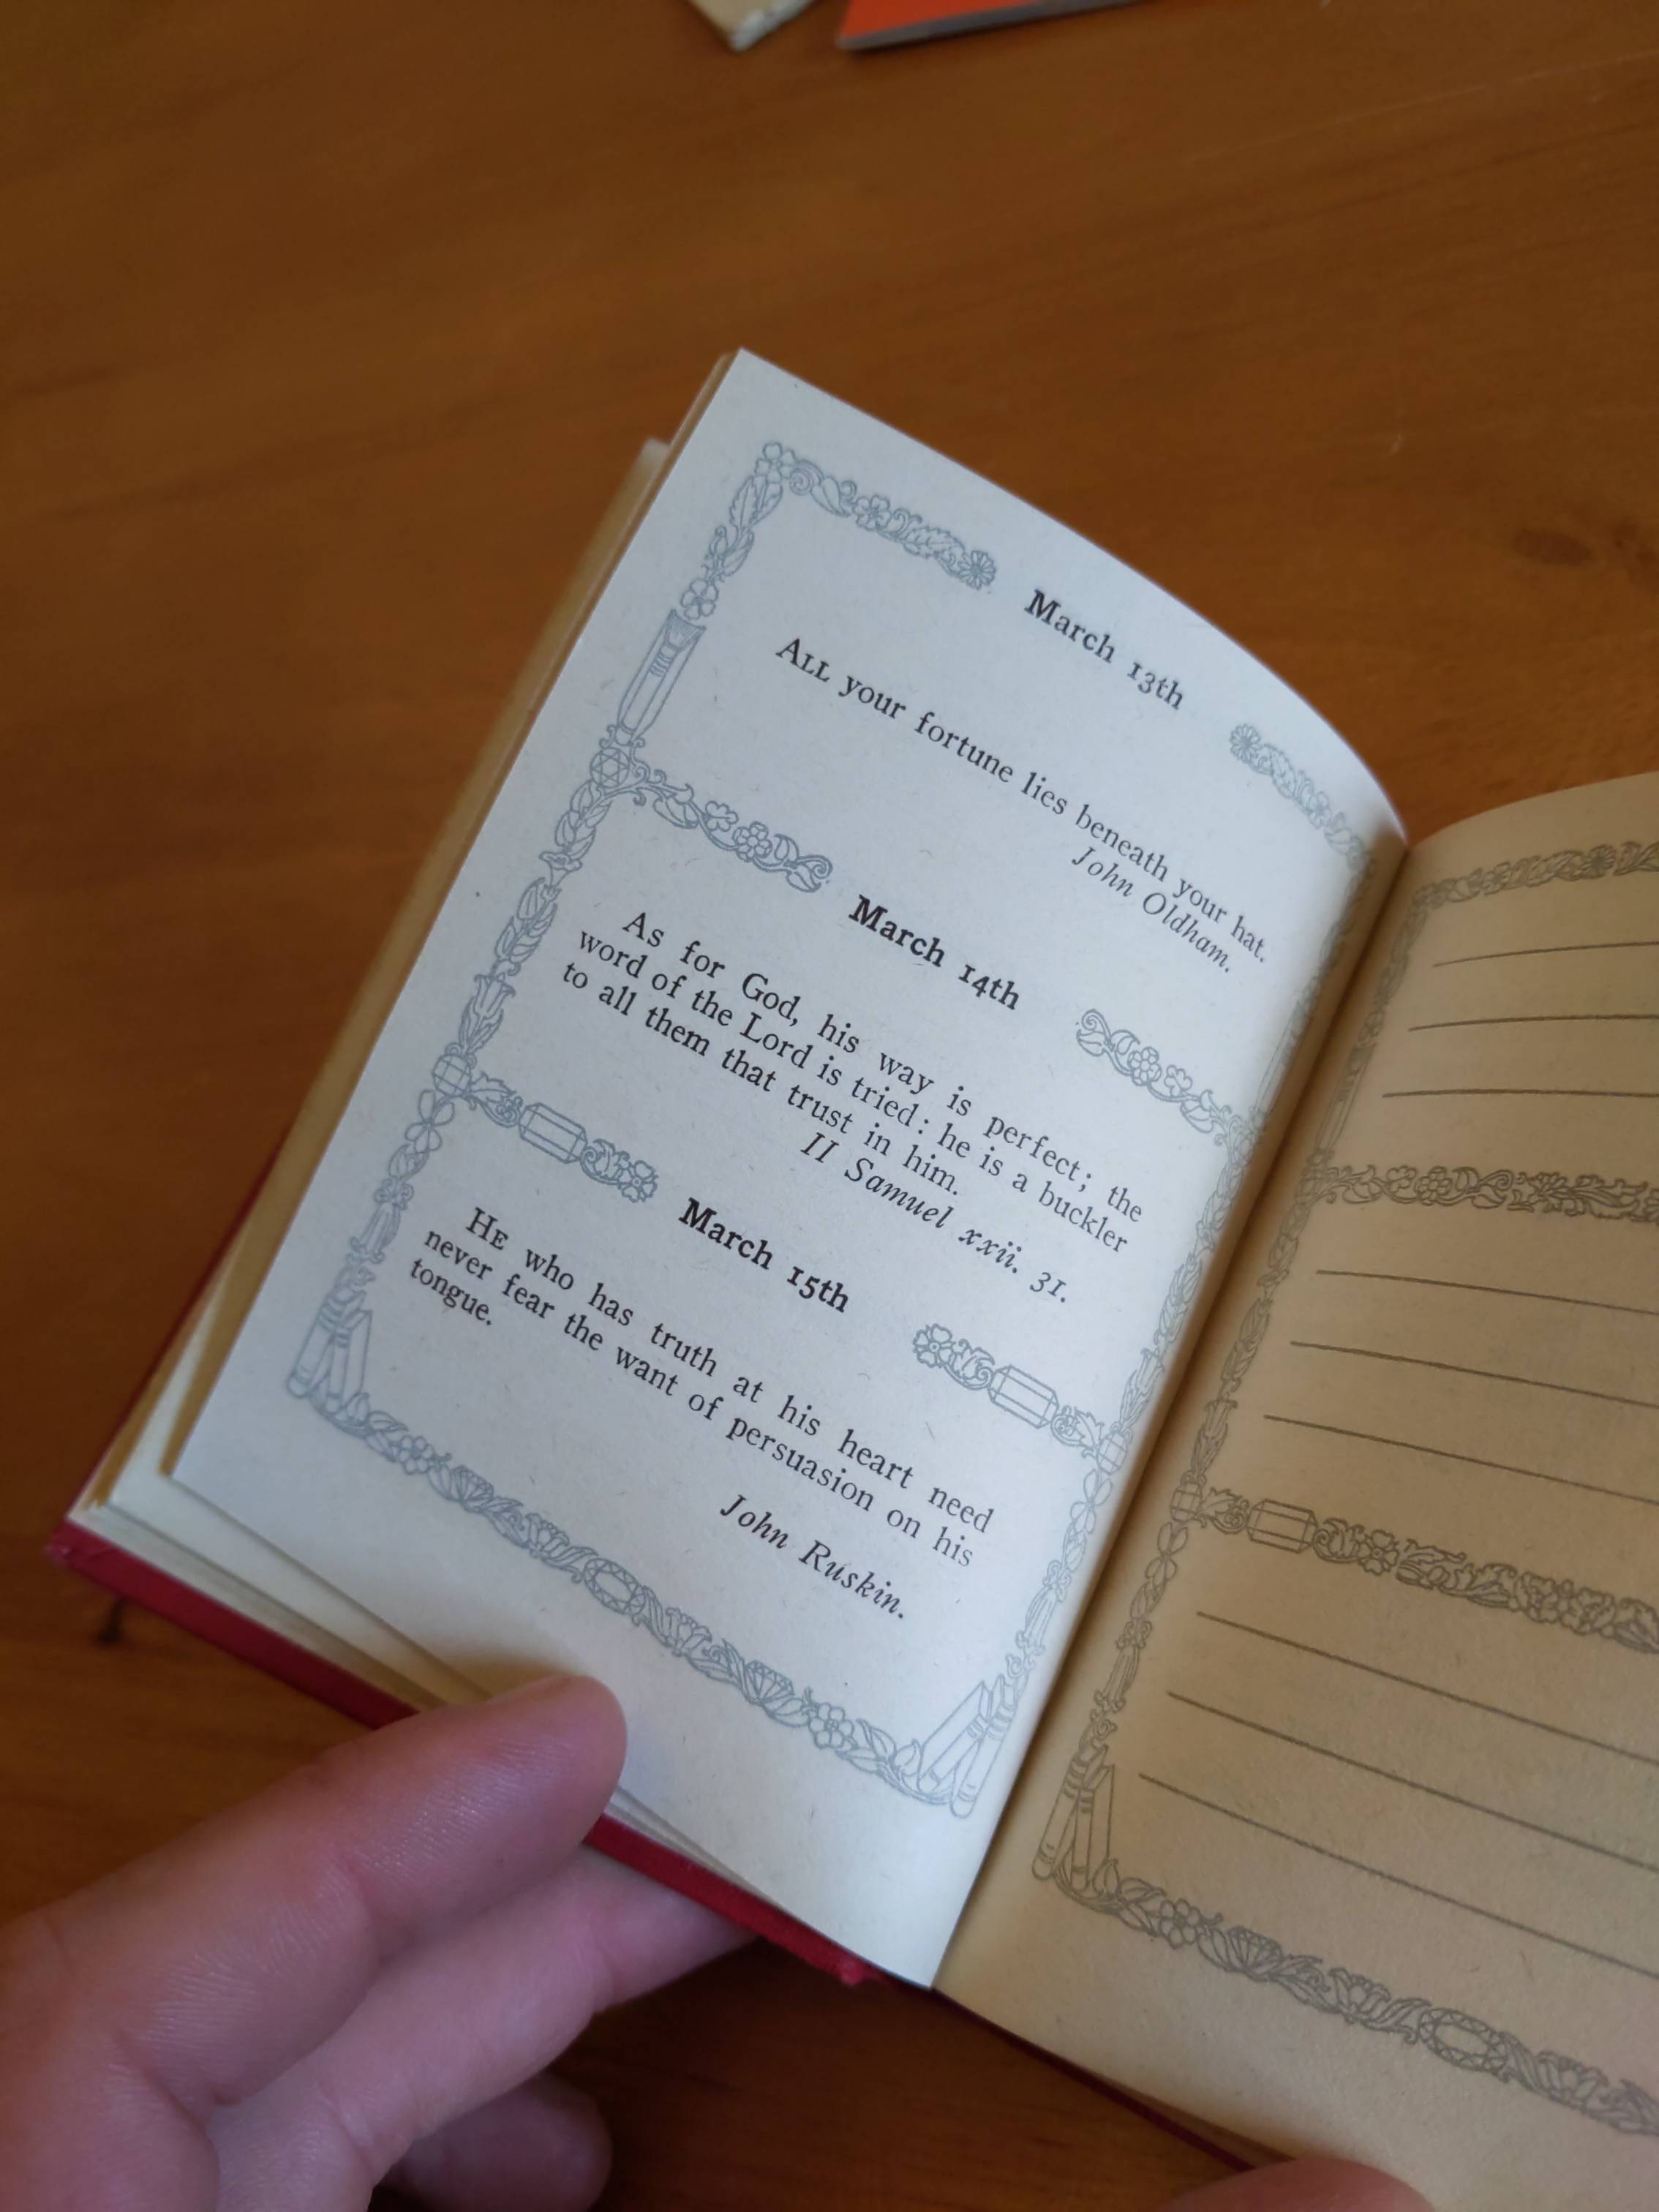 March 13th
ALL your fortune lies beneath your hat.
John Oldham.
March 14th
As for God, his way is perfect; the
word of the Lord is tried: he is a buckler
to all them that trust in him.
II Samuel xxii. 31.
March 15th
HE who has truth at his heart need
never fear the want of persuasion on his
tongue.
John Ruskin.